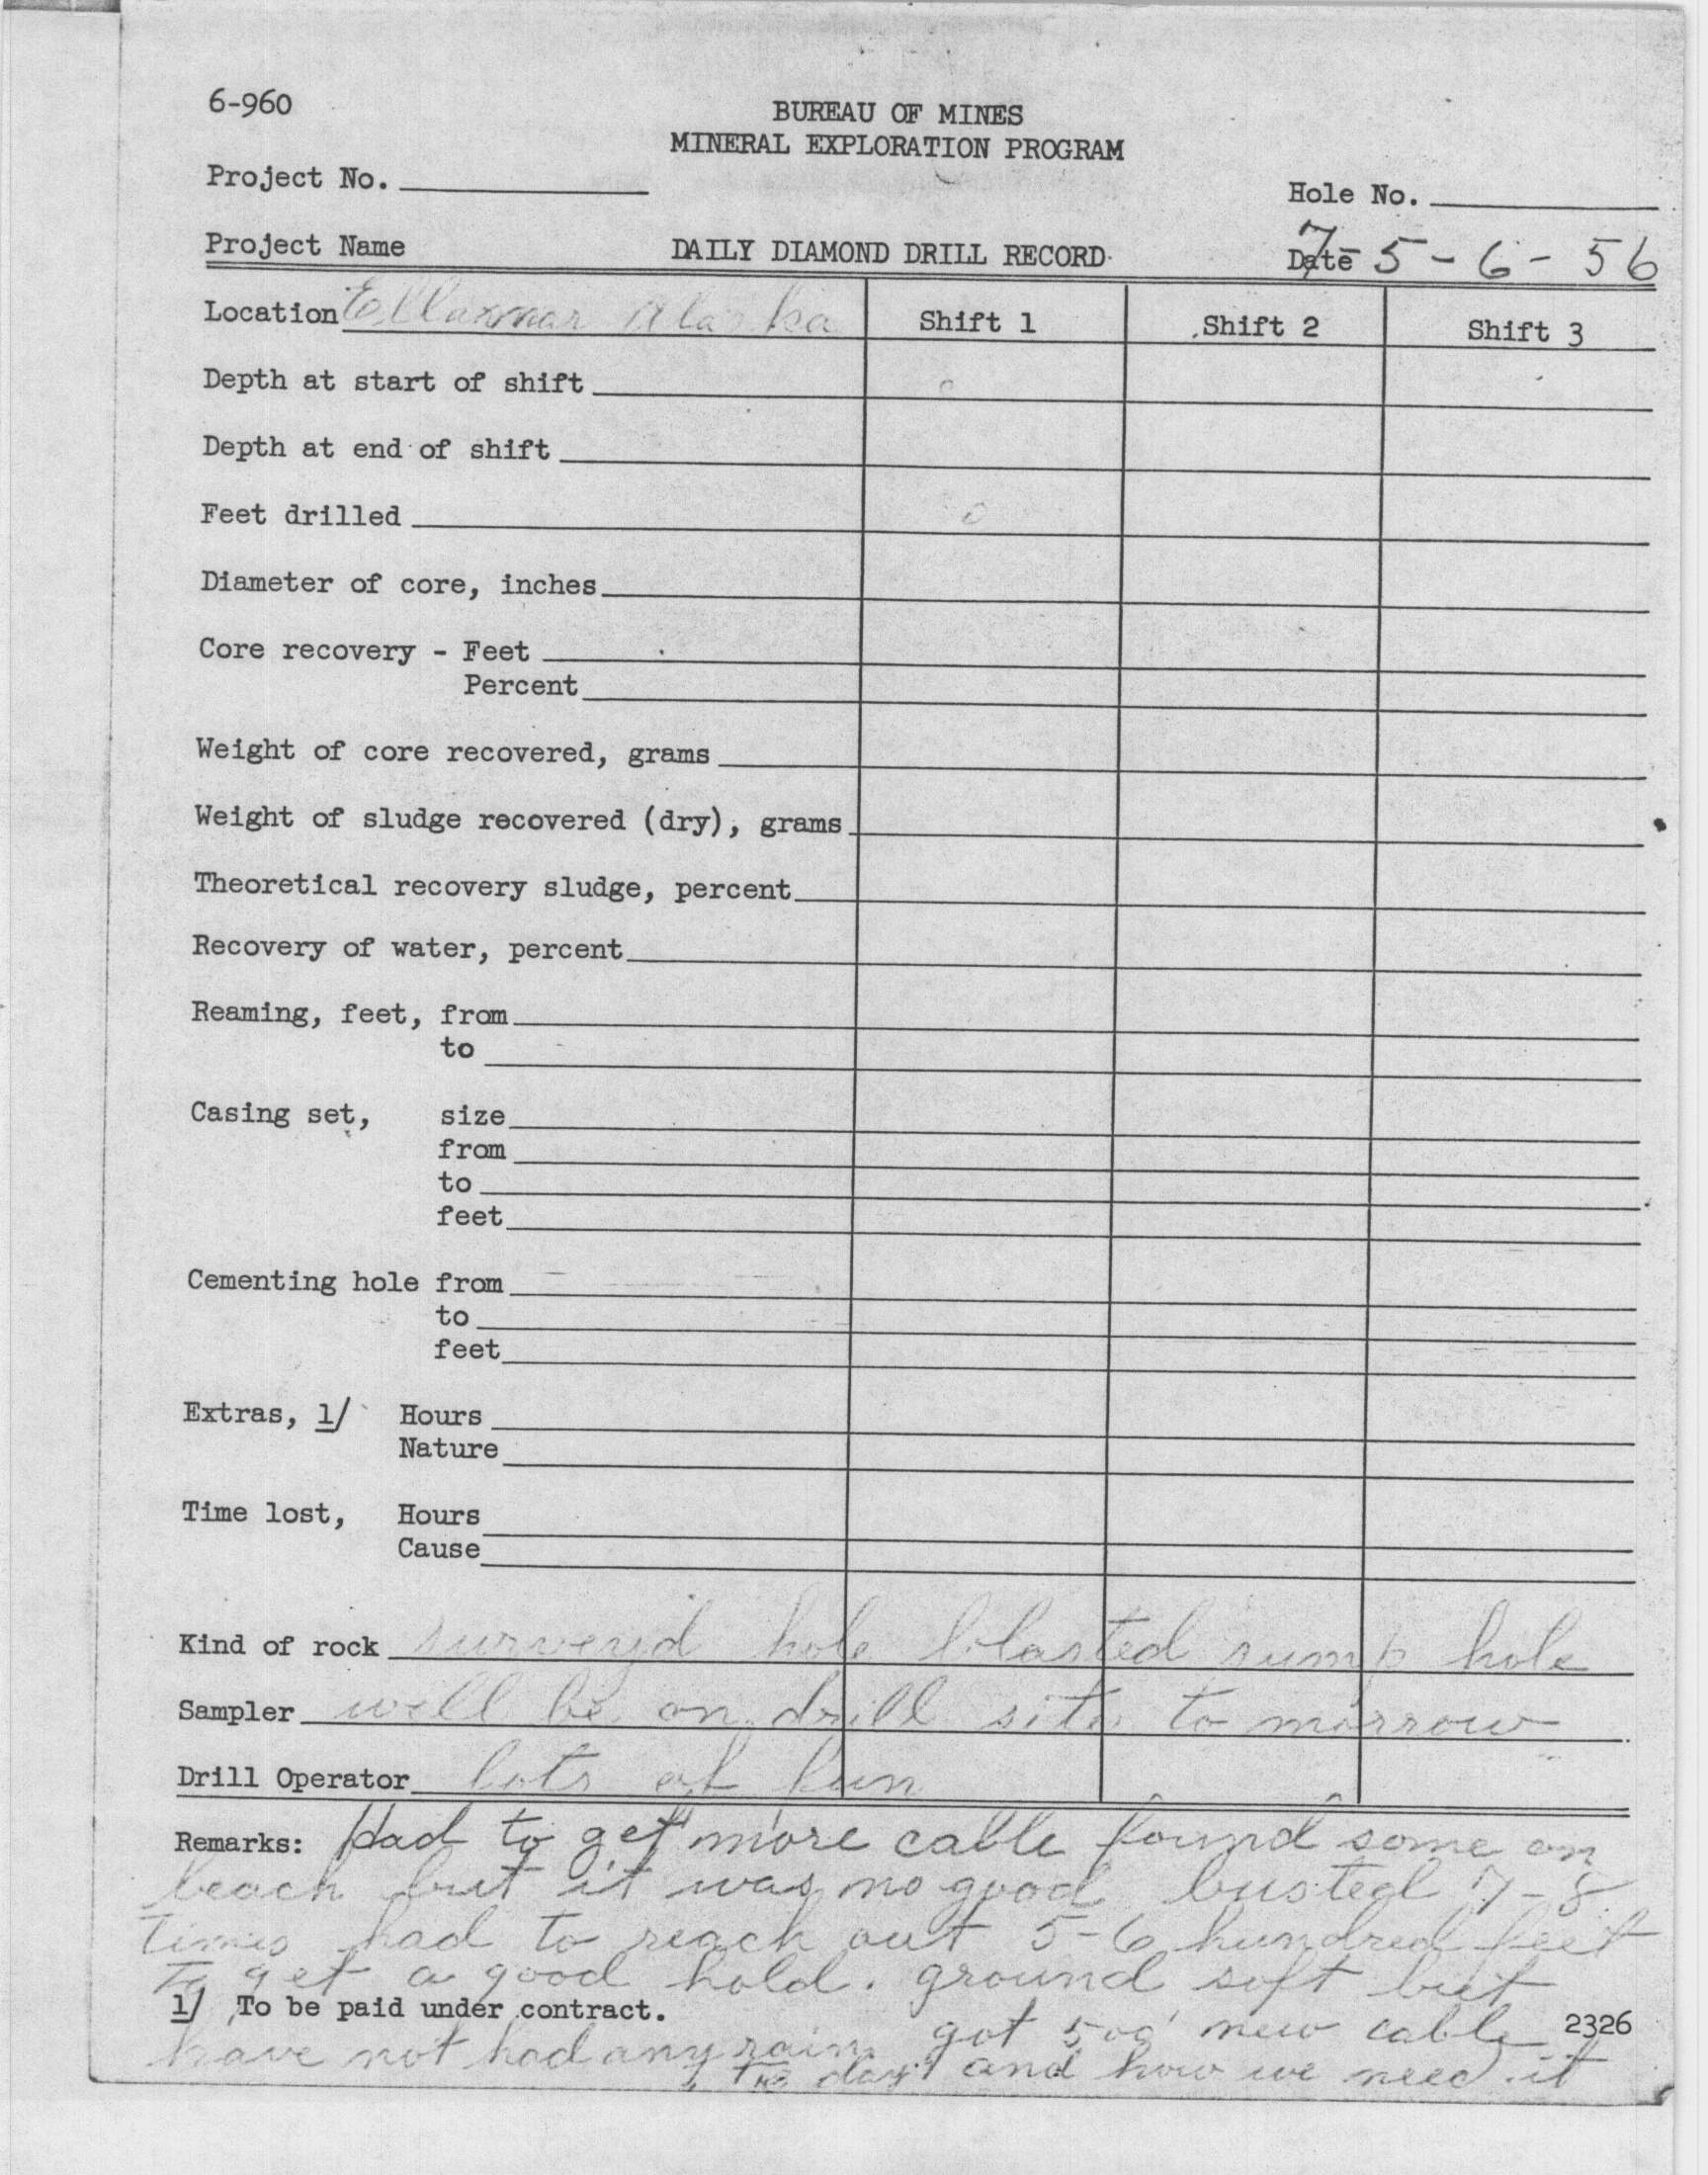 6-960
BUREAU OF MINES
MINERAL EXPLORATION PROGRAM
Project No.
Hole No.
Project Name DAILY DIAMOND DRILL RECORD Date 7-5-6-56
Location Ellamar Alaska Shift 1 Shift 2 Shift 3
Depth at start of shift 0
Depth at end of shift
Feet drilled 0
Diameter of core, inches
Core recovery - Feet
Percent
Weight of core recovered, grams
Weight of sludge recovered (dry), grams
Theoretical recovery sludge, percent
Recovery of water, percent
Reaming, feet, from
to
Casing set, size
from
to
feet
Cementing hole from
to
feet
Extras, 1/ Hours
Nature
Time lost, Hours
Cause
Kind of rock surveyd hole blasted sump hole
Sampler will be on drill site to morrow
Drill Operator lots of fun
Remarks: Had to get more cable found some on
beach but it was no good busted 7-8
times had to reach out 5-6 hundred feet
To get a good hold. ground soft but
1/ To be paid under contract. 2326
have not had any rain got 500' new cable
day and how we need it